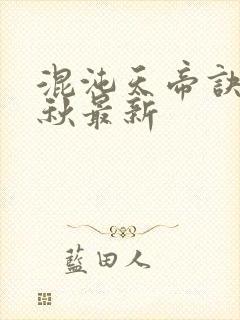 混沌天帝訣
秋最新
藍田人